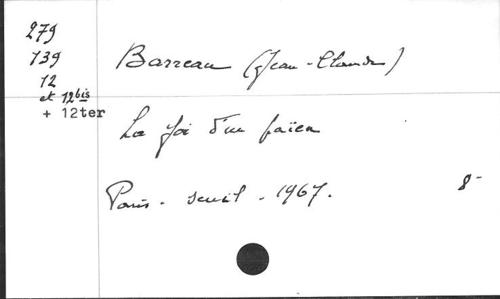 279
139
12
et 12bis
+ 12ter
Barreau (Jean-Claude)
La foi d'un païen
Paris - Seuil - 1967.
8-